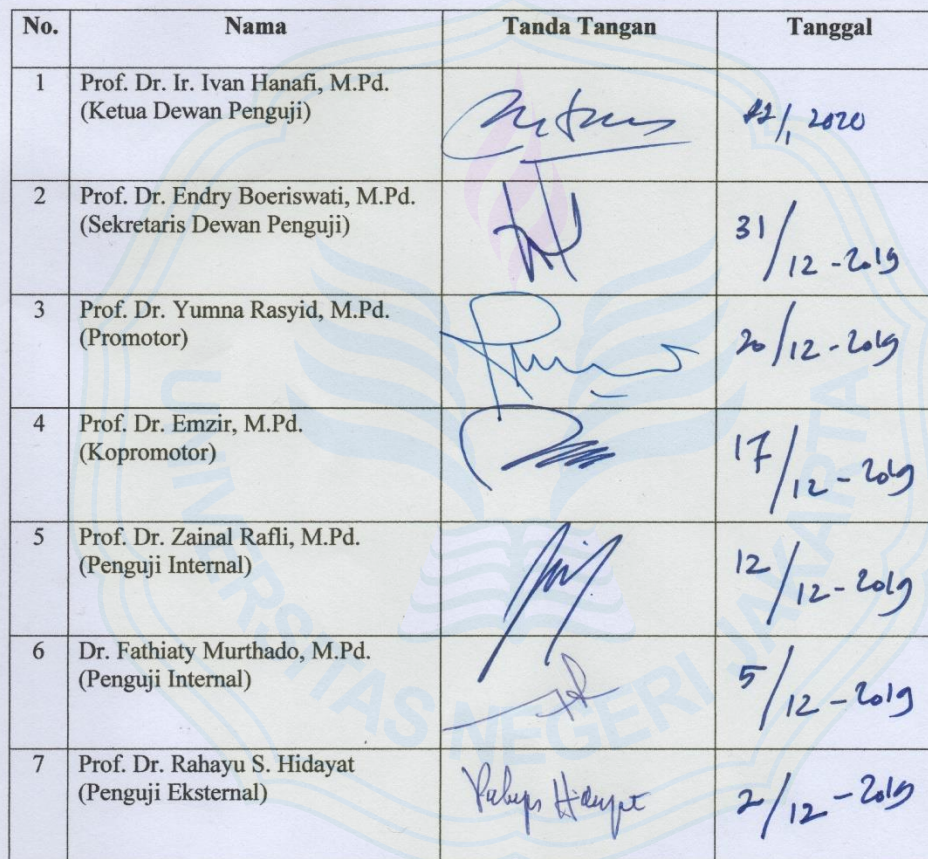 No. Nama Tanda Tangan Tanggal
1 Prof. Dr. Ir. Ivan Hanafi, M.Pd.
(Ketua Dewan Penguji)
/1 2020
2 Prof. Dr. Endry Boeriswati, M.Pd.
(Sekretaris Dewan Penguji)
31/12-2019
3 Prof. Dr. Yumna Rasyid, M.Pd.
(Promotor)
20/12-2019
4 Prof. Dr. Emzir, M.Pd.
(Kopromotor)
17/12-2019
5 Prof. Dr. Zainal Rafli, M.Pd.
(Penguji Internal)
12/12-2019
6 Dr. Fathiaty Murthado, M.Pd.
(Penguji Internal)
5/12-2019
7 Prof. Dr. Rahayu S. Hidayat
(Penguji Eksternal)
Rahayu Hidayat
2/12-2019
UNIVERSITAS NEGERI JAKARTA